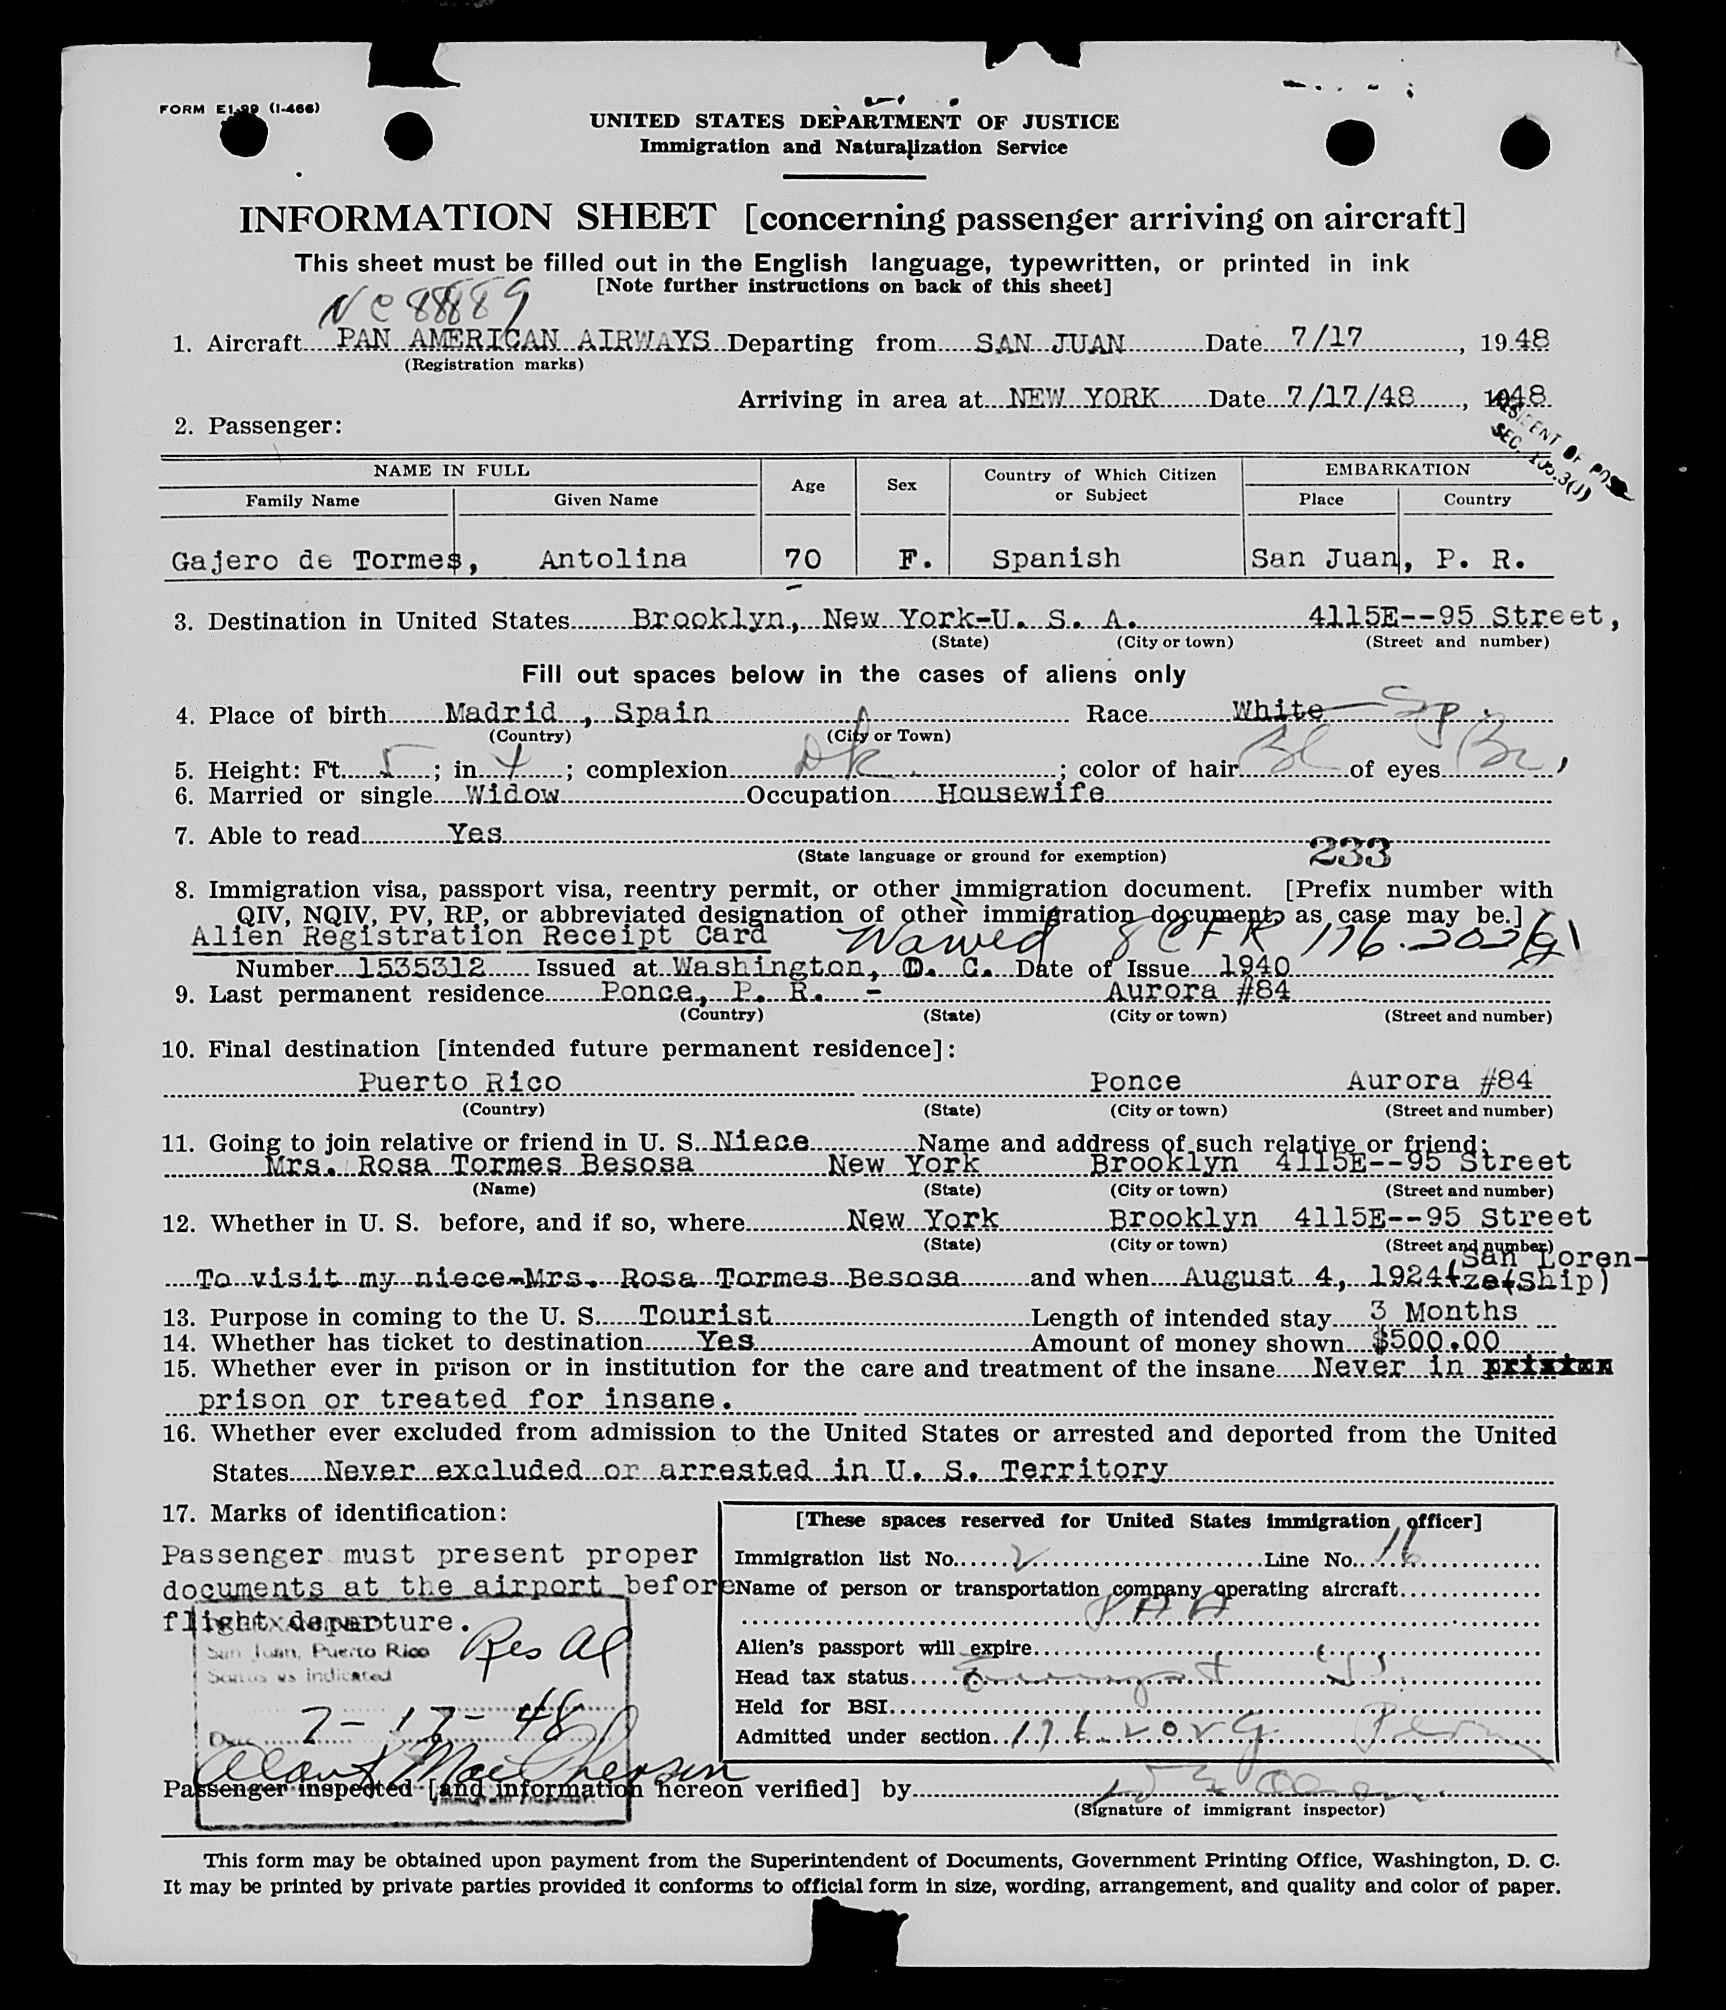 FORM E1-99 (I-466)
UNITED STATES DEPARTMENT OF JUSTICE
Immigration and Naturalization Service
INFORMATION SHEET [concerning passenger arriving on aircraft]
This sheet must be filled out in the English language, typewritten, or printed in ink
[Note further instructions on back of this sheet]
1. Aircraft PAN AMERICAN AIRWAYS Departing from SAN JUAN Date 7/17, 1948
(Registration marks)
Arriving in area at NEW YORK Date 7/17/48, 1948
2. Passenger:
NAME IN FULL Age Sex Country of Which Citizen or Subject EMBARKATION
Family Name Given Name Place Country
Gajero de Tormes, Antolina 70 F. Spanish San Juan, P. R.
3. Destination in United States Brooklyn, New York-U. S. A. 4115E--95 Street,
(State) (City or town) (Street and number)
Fill out spaces below in the cases of aliens only
4. Place of birth Madrid, Spain Race White Sp.
(Country) (City or Town)
5. Height: Ft. 5; in. 4; complexion Dk.; color of hair Bl of eyes Br,
6. Married or single Widow Occupation Housewife
7. Able to read Yes
(State language or ground for exemption) 233
8. Immigration visa, passport visa, reentry permit, or other immigration document. [Prefix number with
QIV, NQIV, PV, RP, or abbreviated designation of other immigration document, as case may be.]
Alien Registration Receipt Card Waived 8 CFR 176.202(g)
Number 1535312 Issued at Washington, D. C. Date of Issue 1940
9. Last permanent residence Ponce, P. R. - Aurora #84
(Country) (State) (City or town) (Street and number)
10. Final destination [intended future permanent residence]:
Puerto Rico Ponce Aurora #84
(Country) (State) (City or town) (Street and number)
11. Going to join relative or friend in U. S. Niece Name and address of such relative or friend:
Mrs. Rosa Tormes Besosa New York Brooklyn 4115E--95 Street
(Name) (State) (City or town) (Street and number)
12. Whether in U. S. before, and if so, where New York Brooklyn 4115E--95 Street
(State) (City or town) (Street and number)
(San Loren-
To visit my niece-Mrs. Rosa Tormes Besosa and when August 4, 1924 zo(Ship)
13. Purpose in coming to the U. S. Tourist Length of intended stay 3 Months
14. Whether has ticket to destination Yes Amount of money shown $500.00
15. Whether ever in prison or in institution for the care and treatment of the insane Never in
prison or treated for insane.
16. Whether ever excluded from admission to the United States or arrested and deported from the United
States Never excluded or arrested in U. S. Territory
17. Marks of identification:
Passenger must present proper
documents at the airport before
flight departure.
San Juan, Puerto Rico Res Al
Status as indicated
Date 7-17-48
[These spaces reserved for United States immigration officer]
Immigration list No. 2 Line No. 16
Name of person or transportation company operating aircraft
PAA
Alien's passport will expire
Head tax status Exempt
Held for BSI
Admitted under section 176.202g
Passenger inspected [and information hereon verified] by
(Signature of immigrant inspector)
This form may be obtained upon payment from the Superintendent of Documents, Government Printing Office, Washington, D. C.
It may be printed by private parties provided it conforms to official form in size, wording, arrangement, and quality and color of paper.